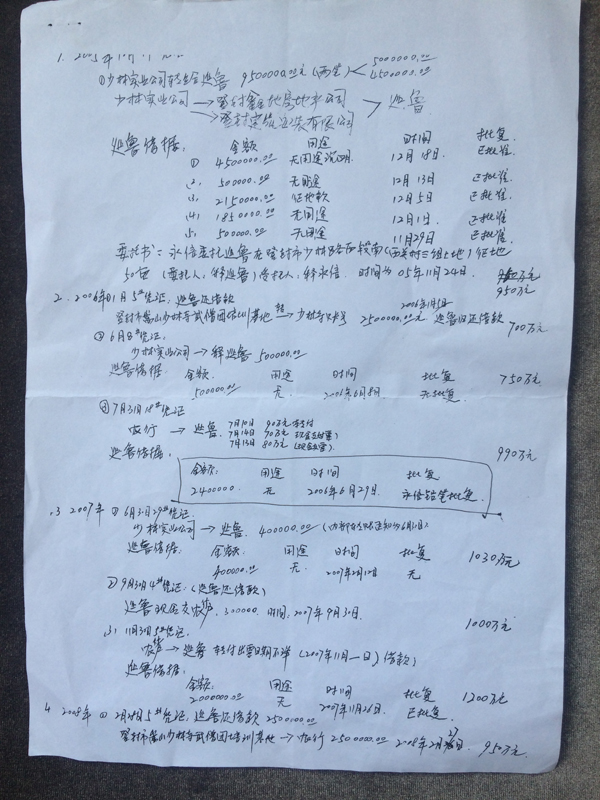 1. 2005年
①少林实业公司转 延鲁 9500000.00元(两笔) < 5000000.00
4500000.00
少林实业公司 → 登封鑫地房地产公司 > 延鲁
→ 登封 有限公司
延鲁借据: 金额 用途 时间 批复
① 4500000.00 无用途说明 12月18日 已批准
(2) 500000.00 无用途 12月13日 已批准
(3) 2150000.00 征地款 12月5日 已批准
(4) 1850000.00 无用途 12月1日 已批准
5) 500000.00 无用途 11月29日 已批准
委托书:永信委托延鲁在登封市少林 (西 村三组土地)征地
50亩 (委托人,释延鲁)受托人,释永信. 时间为05年11月24日. 950万元
2. 2006年①1月5#凭证,延鲁还借款 2006年1月5日
登封市嵩山少林寺武僧团培训基地 转→ 少林寺 2500000.00元 延鲁归还借款 700万元
② 6月8#凭证,
少林实业公司 → 释延鲁 500000.00
延鲁借据: 金额. 用途 时间 批复 750万元
500000.00 无 2006年6月8日 无批复.
③ 7月31日18#凭证
农行 → 延鲁. 7月10日 90万元
7月14日 70万元 (现金支票)
7月13日 80万元 (现金支票).
延鲁借据: 990万元
金额: 用途 时间 批复
2400000. 无 2006年6月29日. 永信 批复.
3 2007年 ① 6月3日29#凭证.
少林实业公司 → 延鲁. 400000.00
延鲁借据: 金额: 用途 时间 批复 1030万元
400000.00 无. 2007年2月12日 无
② 9月30日4#凭证:(延鲁还借款)
延鲁现金交农户, 300000. 时间: 2007年9月30日.
1000万元
3). 11月30日5#凭证.
农户 → 延鲁 转付出票日期不详 (2007年11月一日) (借款)
延鲁借据:
金额: 用途 时间 批复 1200万元
2000000.00 无 2007年11月26日. 已批准.
4. 2008年 ① 2月28日5#凭证, 延鲁还借款 2500000.00
登封市嵩山少林寺武僧团培训基地 → 农行 2500000.00 2008年2月27日. 950万元.